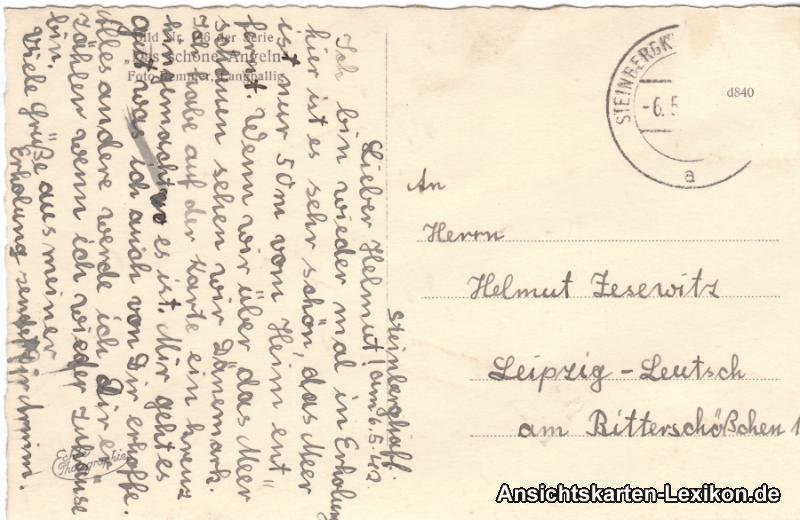 Bild Nr. 146 der Serie
„Das schöne Angeln"
Foto Remmer, Langballig
Steinberghaff.
am 6.5.42.
Lieber Helmut,
Ich bin wieder mal in Erholung
hier ist es sehr schön, das Meer
ist nur 50m vom Heim ent
fernt. Wenn wir über das Meer
schauen sehen wir Dänemark.
Ich habe auf der Karte ein kreuz
hingemacht wo es ist. Mir geht es
gut was ich auch von Dir erhoffe.
Alles andere werde ich Dir er
zählen wenn ich wieder zuhause
bin.
Viele Grüße aus meiner
Erholung sendet Dir Armin.
Echte
Photographie
STEINBERGK
-6.5
a
d840
An
Herrn
Helmut Jesewitz
Leipzig-Leutsch
am Ritterschößchen 1
Ansichtskarten-Lexikon.de